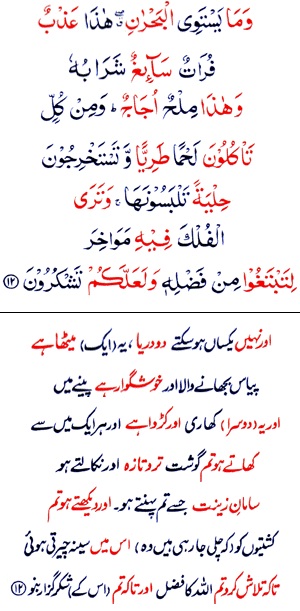 وَمَا یَسْتَوِی الْبَحْرٰنِ ۖ هٰذَا عَذْبٌ
فُرَاتٌ سَآىِٕغٌ شَرَابُهٗ
وَهٰذَا مِلْحٌ اُجَاجٌ ؕ وَمِنْ كُلٍّ
تَاْكُلُوْنَ لَحْمًا طَرِیًّا وَّتَسْتَخْرِجُوْنَ
حِلْیَةً تَلْبَسُوْنَهَا ۚ وَتَرَی
الْفُلْكَ فِیْهِ مَوَاخِرَ
لِتَبْتَغُوْا مِنْ فَضْلِهٖ وَلَعَلَّكُمْ تَشْكُرُوْنَ ﴿۱۲﴾
اور نہیں یکساں ہو سکتے دو دریا، یہ (ایک) میٹھا ہے
پیاس بجھانے والا اور خوشگوار ہے پینے میں
اور یہ (دوسرا) کھاری اور کڑوا ہے اور ہر ایک میں سے
کھاتے ہو تم گوشت تروتازہ اور نکالتے ہو
سامانِ زینت جسے تم پہنتے ہو۔ اور دیکھتے ہو تم
کشتیوں کو (کہ چلی جا رہی ہیں وہ) اس میں سینہ چیرتی ہوئی
تاکہ تلاش کرو تم اللہ کا فضل اور تاکہ تم (اس کے) شکر گزار بنو ﴿۱۲﴾